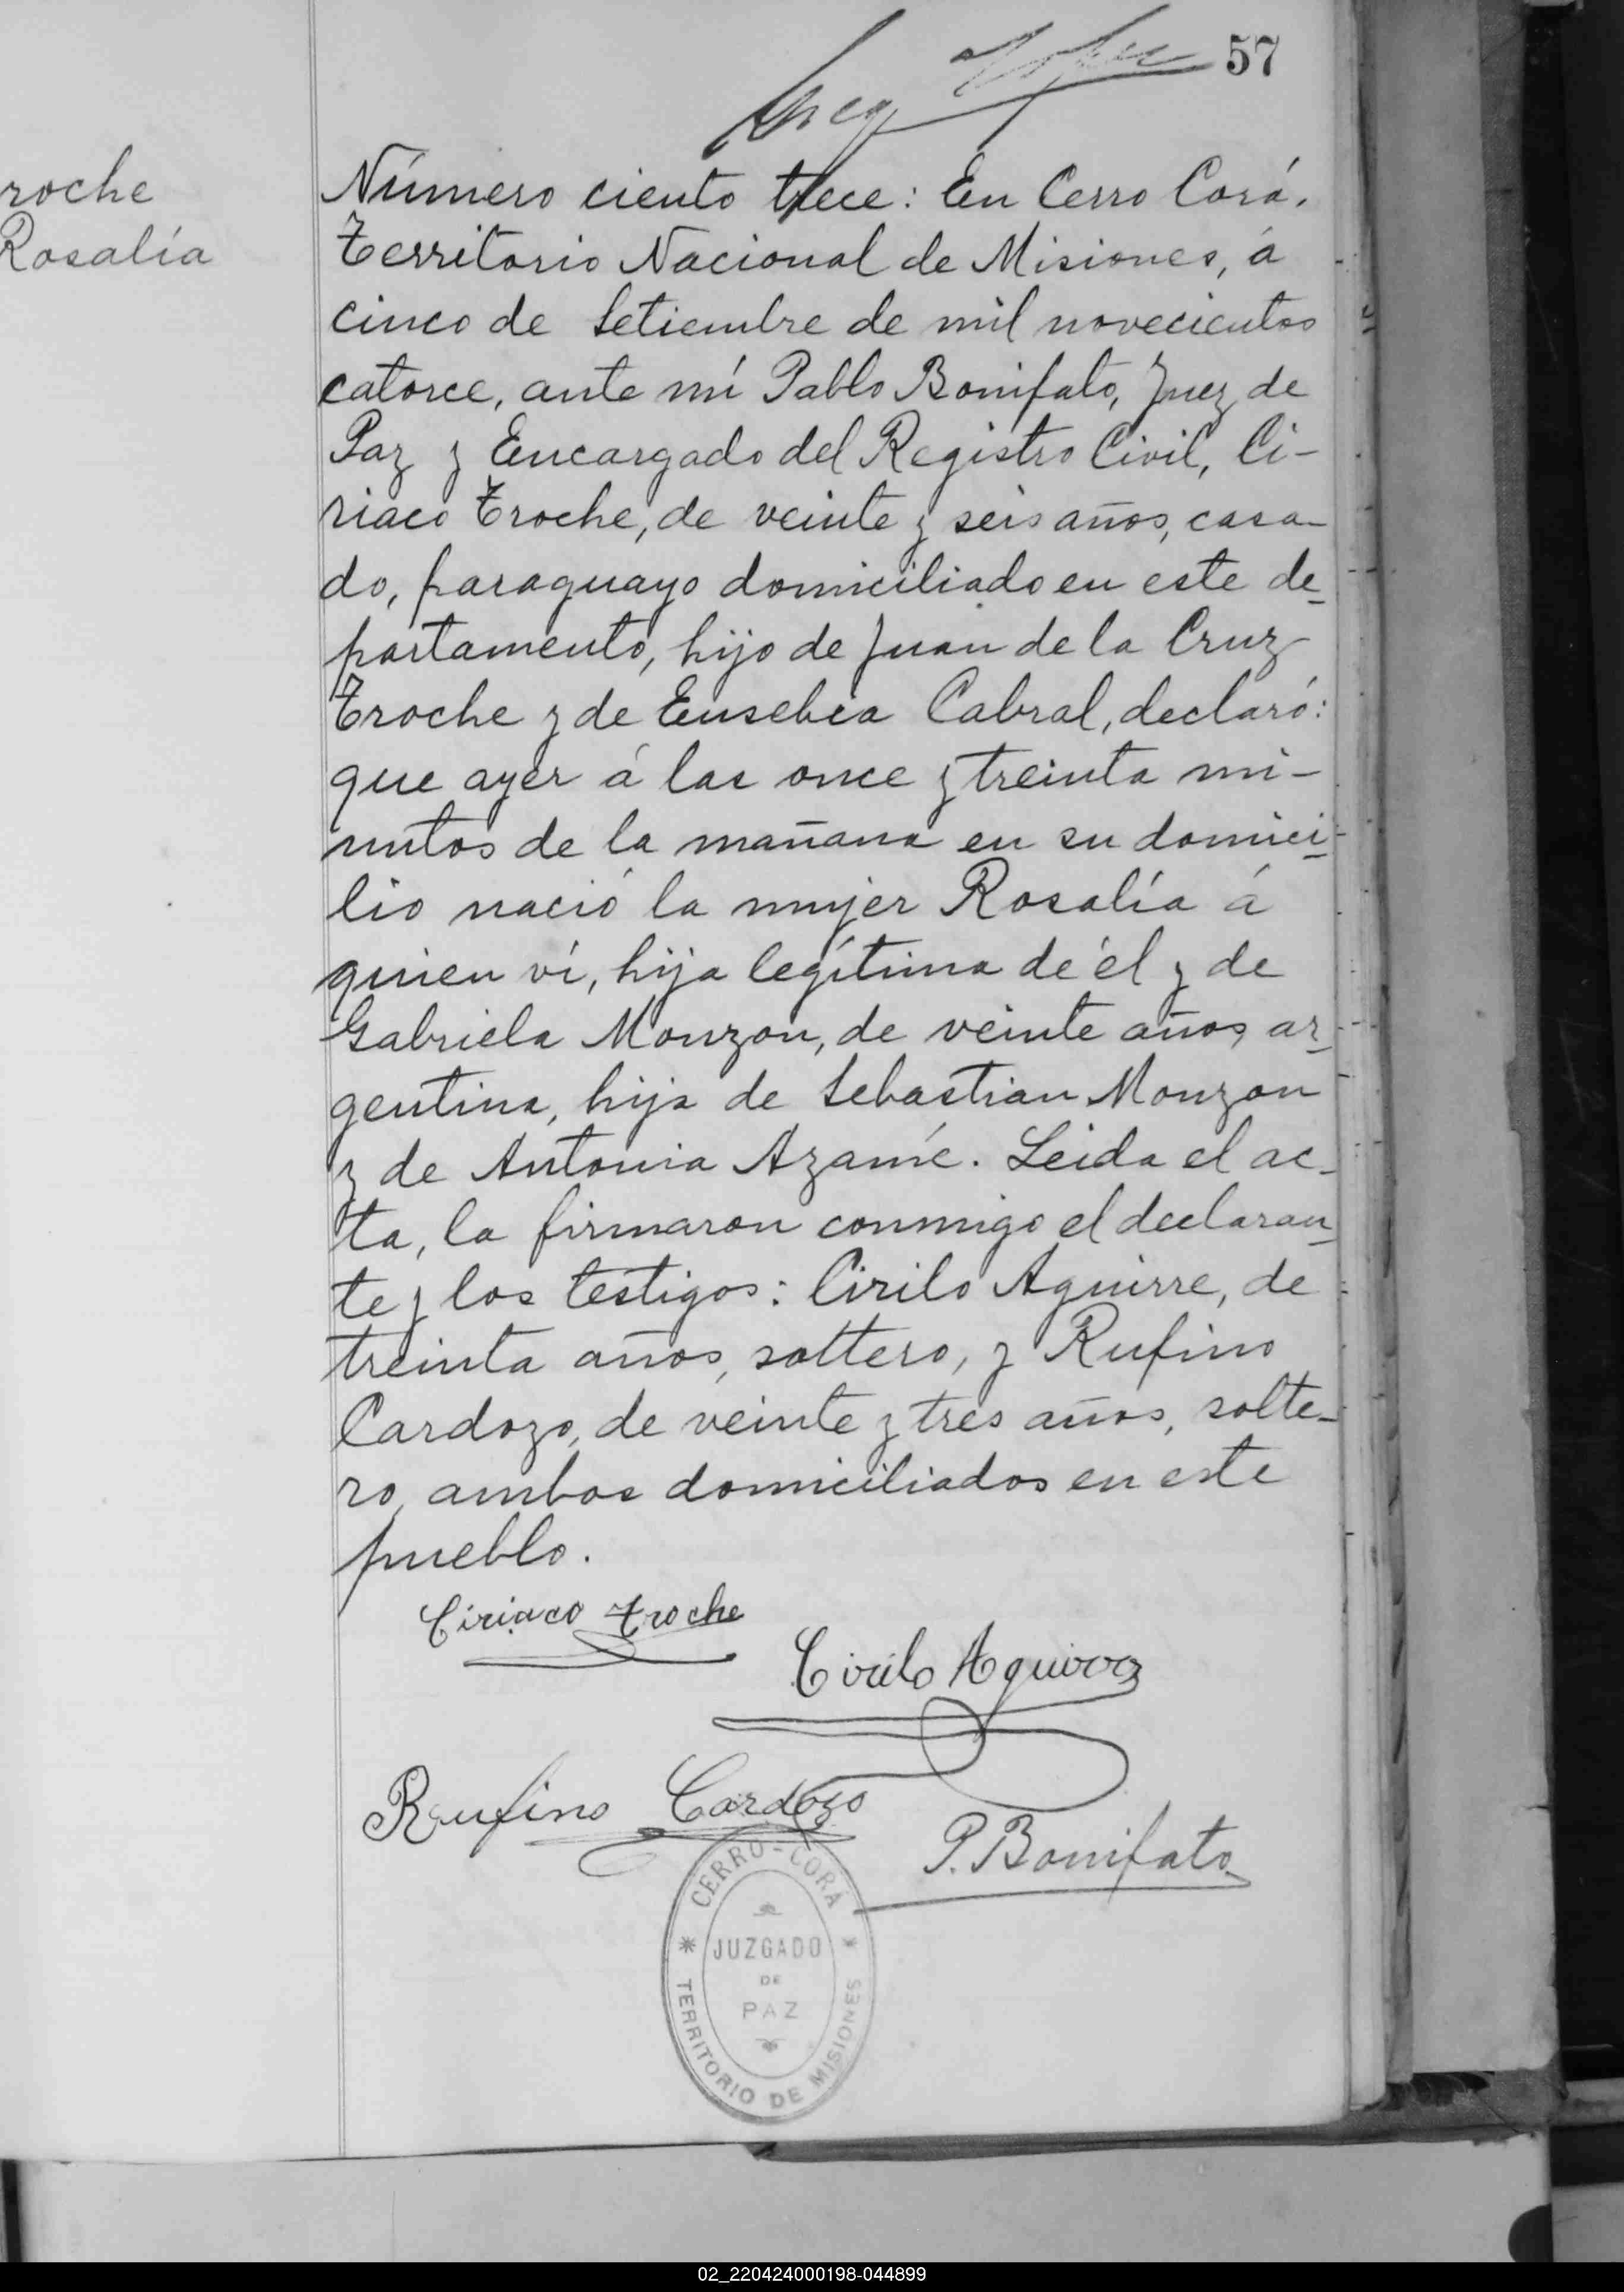 57
roche
Rosalía
Número ciento trece: En Cerro Corá,
Territorio Nacional de Misiones, á
cinco de Setiembre de mil novecientos
catorce, ante mí Pablo Bonifato, Juez de
Paz y Encargado del Registro Civil, Ci-
riaco Troche, de veinte y seis años, casa-
do, paraguayo domiciliado en este de-
partamento, hijo de Juan de la Cruz
Troche y de Eusebia Cabral, declaró:
que ayer á las once y treinta mi-
nutos de la mañana en su domici-
lio nació la mujer Rosalía á
quien ví, hija legítima de él y de
Gabriela Monzon, de veinte años, ar-
gentina, hija de Sebastian Monzon
y de Antonia Azamé. Leida el ac-
ta, la firmaron conmigo el declaran-
te y los testigos: Cirilo Aguirre, de
treinta años, soltero, y Rufino
Cardozo, de veinte y tres años, solte-
ro, ambos domiciliados en este
pueblo.
Ciriaco Troche
Cirilo Aguirre
Rufino Cardozo
P. Bonifato
CERRO-CORÁ
JUZGADO
DE
PAZ
TERRITORIO DE MISIONES
02_220424000198-044899